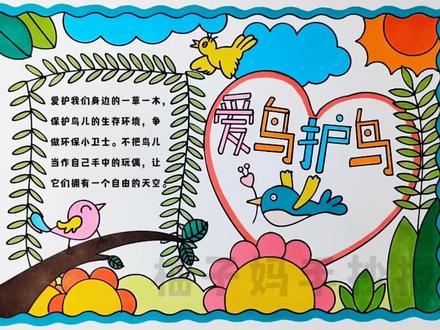 爱护我们身边的一草一木，
保护鸟儿的生存环境，争
做环保小卫士。不把鸟儿
当作自己手中的玩偶，让
它们拥有一个自由的天空。
爱鸟护鸟
柚子妈手抄报